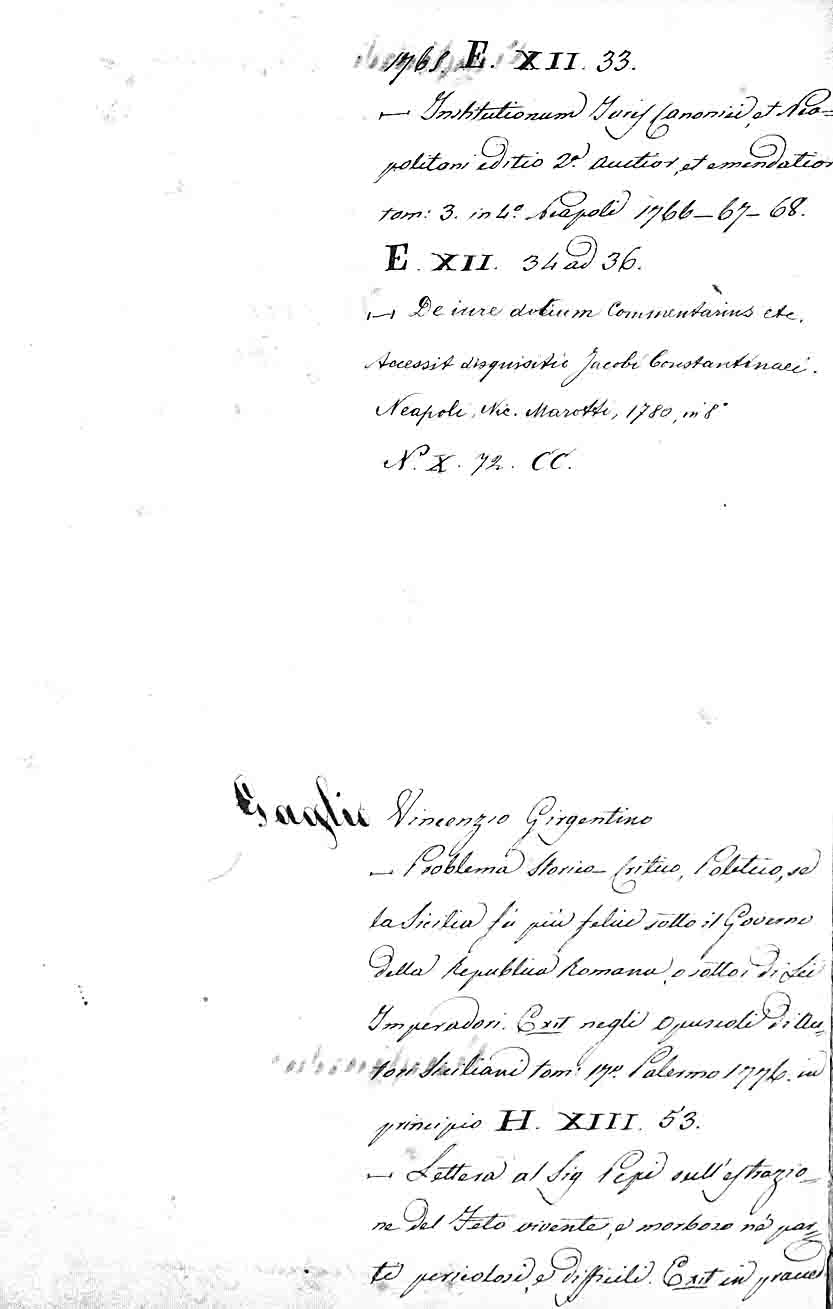 1768. E. XII. 33.
— Institutionum Juris Canonici, et Nea=
politani editio 2ª. auctior, et emendatior
tom: 3. in 4º. Neapoli 1766–67–68.
E. XII. 34 ad 36.
— De iure dotium Commentarius etc.
Accessit disquisitio Jacobi Constantinaei.
Neapoli, Nic. Marotti, 1780, in 8º
N. X. 72. CC.
Gaglio Vincenzio Girgentino
— Problema Storico–Critico, Politico, se
la Sicilia fu più felice sotto il Governo
della Republica Romana, o sotto i di Lei
Imperadori. Exit negli Opuscoli di Au=
tori Siciliani tom: 17º. Palermo 1776. in
principio H. XIII. 53.
— Lettera al Sig Pepi sull'estrazio=
ne del Feto vivente, e morboso né par=
ti pericolosi, e difficili. Exit in praced